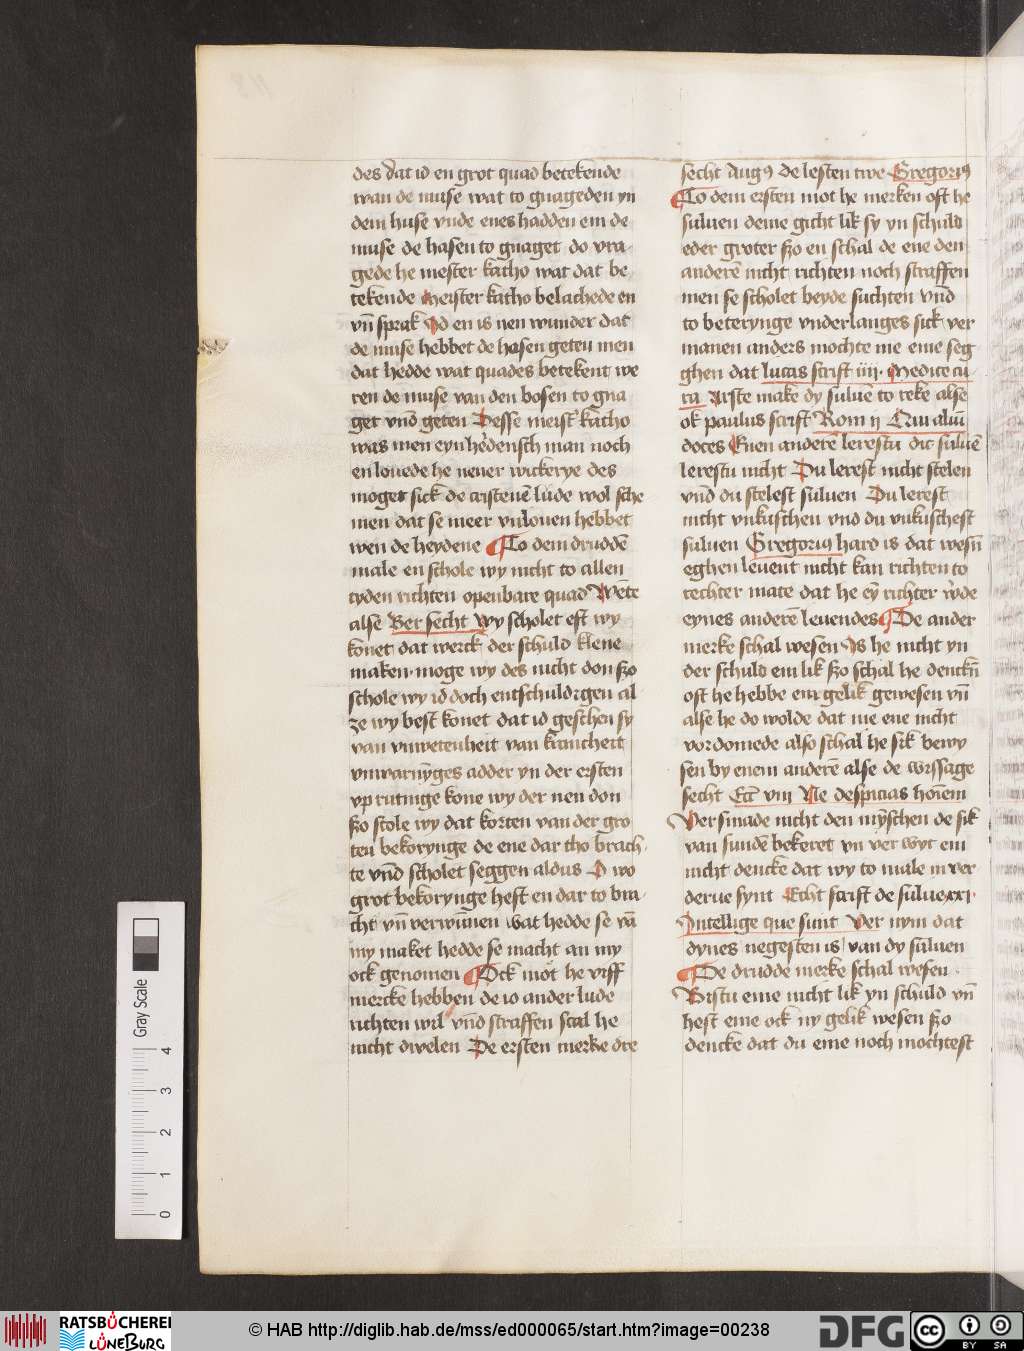 des dat id en grot quad betekende
wan de muse wat to gnageden yn
dem huse vnde enes hadden em de
muse de hasen to gnaget do vra-
gede he mester katho wat dat be
tekende Meister katho belachede en
vn̄ sprak Id en is nen wunder dat
de muse hebbet de hasen geten men
dat hedde wat quades betekent we
ren de muse van den hosen to gna
get vnd geten Desse meist' katho
was men eyn hedensch man noch
en louede he nener wickerye des
moget sick de cristenē lude wol sche
men dat se meer vnlouen hebbet
wen de heydene To dem druddē
male en schole wy nicht to allen
tyden richten openbare quad Wēte
alse Ber secht Wy scholet eft wy
konet dat werck der schuld klene
maken moge wy des nicht don szo
schole wy id doch entschuldigen al
ze wy best konet dat id geschen sy
van vnwetenheit van krancheit
vnwarnȳges adder yn der ersten
vp rutinge kone wy der nen don
szo stole wy dat korten van der gro
ten bekorynge de ene dar tho brach
te vnd scholet seggen aldus O wo
grot bekorynge heft en dar to bra-
cht vn̄ verwūnen wat hedde se vā
my maket hedde se macht an my
ock genomen Ock mot he viff
mercke hebben de io ander lude
richten wil vnd straffen scal he
nicht dwelen De ersten merke dre
secht Aug9 de lesten twe Gregori9
To dem ersten mot he merken oft he
suluen deme gicht lik sy yn schuld
eder groter szo en schal de ene den
anderē nicht richten noch straffen
men se scholet beyde suchten vnd
to beterynge vnderlanges sick ver
manen anders mochte me eme seg
ghen dat lucas scrift iiij. Medice cu
ra Arste make dy suluē to reke alse
ok paulus scrift Rom ij Qui aliū
doces Enen anderē lerestu dic suluē
lerestu nicht Du lerest nicht stelen
vnd du stelest suluen Du lerest
nicht vnkuschen vnd du vnkuschest
suluen Gregori9 hard is dat wesn̄
eghen leuent nicht kan richten to
rechter mate dat he eȳ richter w'de
eynes anderē leuendes De ander
merke schal wesen Is he nicht yn
der schuld em lik szo schal he denckn̄
oft he hebbe em gelik gewesen vn̄
alse he do wolde dat me ene nicht
vordomede also schal he sik bewy
sen by enem anderē alse de wyssage
secht Ecc̄ viij Ne despicias hoīem
Versmade nicht den mȳschen de sik
van sundē bekeret yn ver wyt em
nicht dencke dat wy to male in ver
derue synt Echt scrift de sulue xxi.
Intellige que sunt Ver nym dat
dynes negesten is van dy suluen
De drudde merke schal wesen
Bistu eme nicht lik yn schuld vn̄
hest eme ock ny gelik wesen szo
dencke dat du eme noch mochtest
Gray Scale
0 1 2 3 4
RATSBÜCHEREI
LÜNEBURG
© HAB http://diglib.hab.de/mss/ed000065/start.htm?image=00238
DFG
CC BY SA